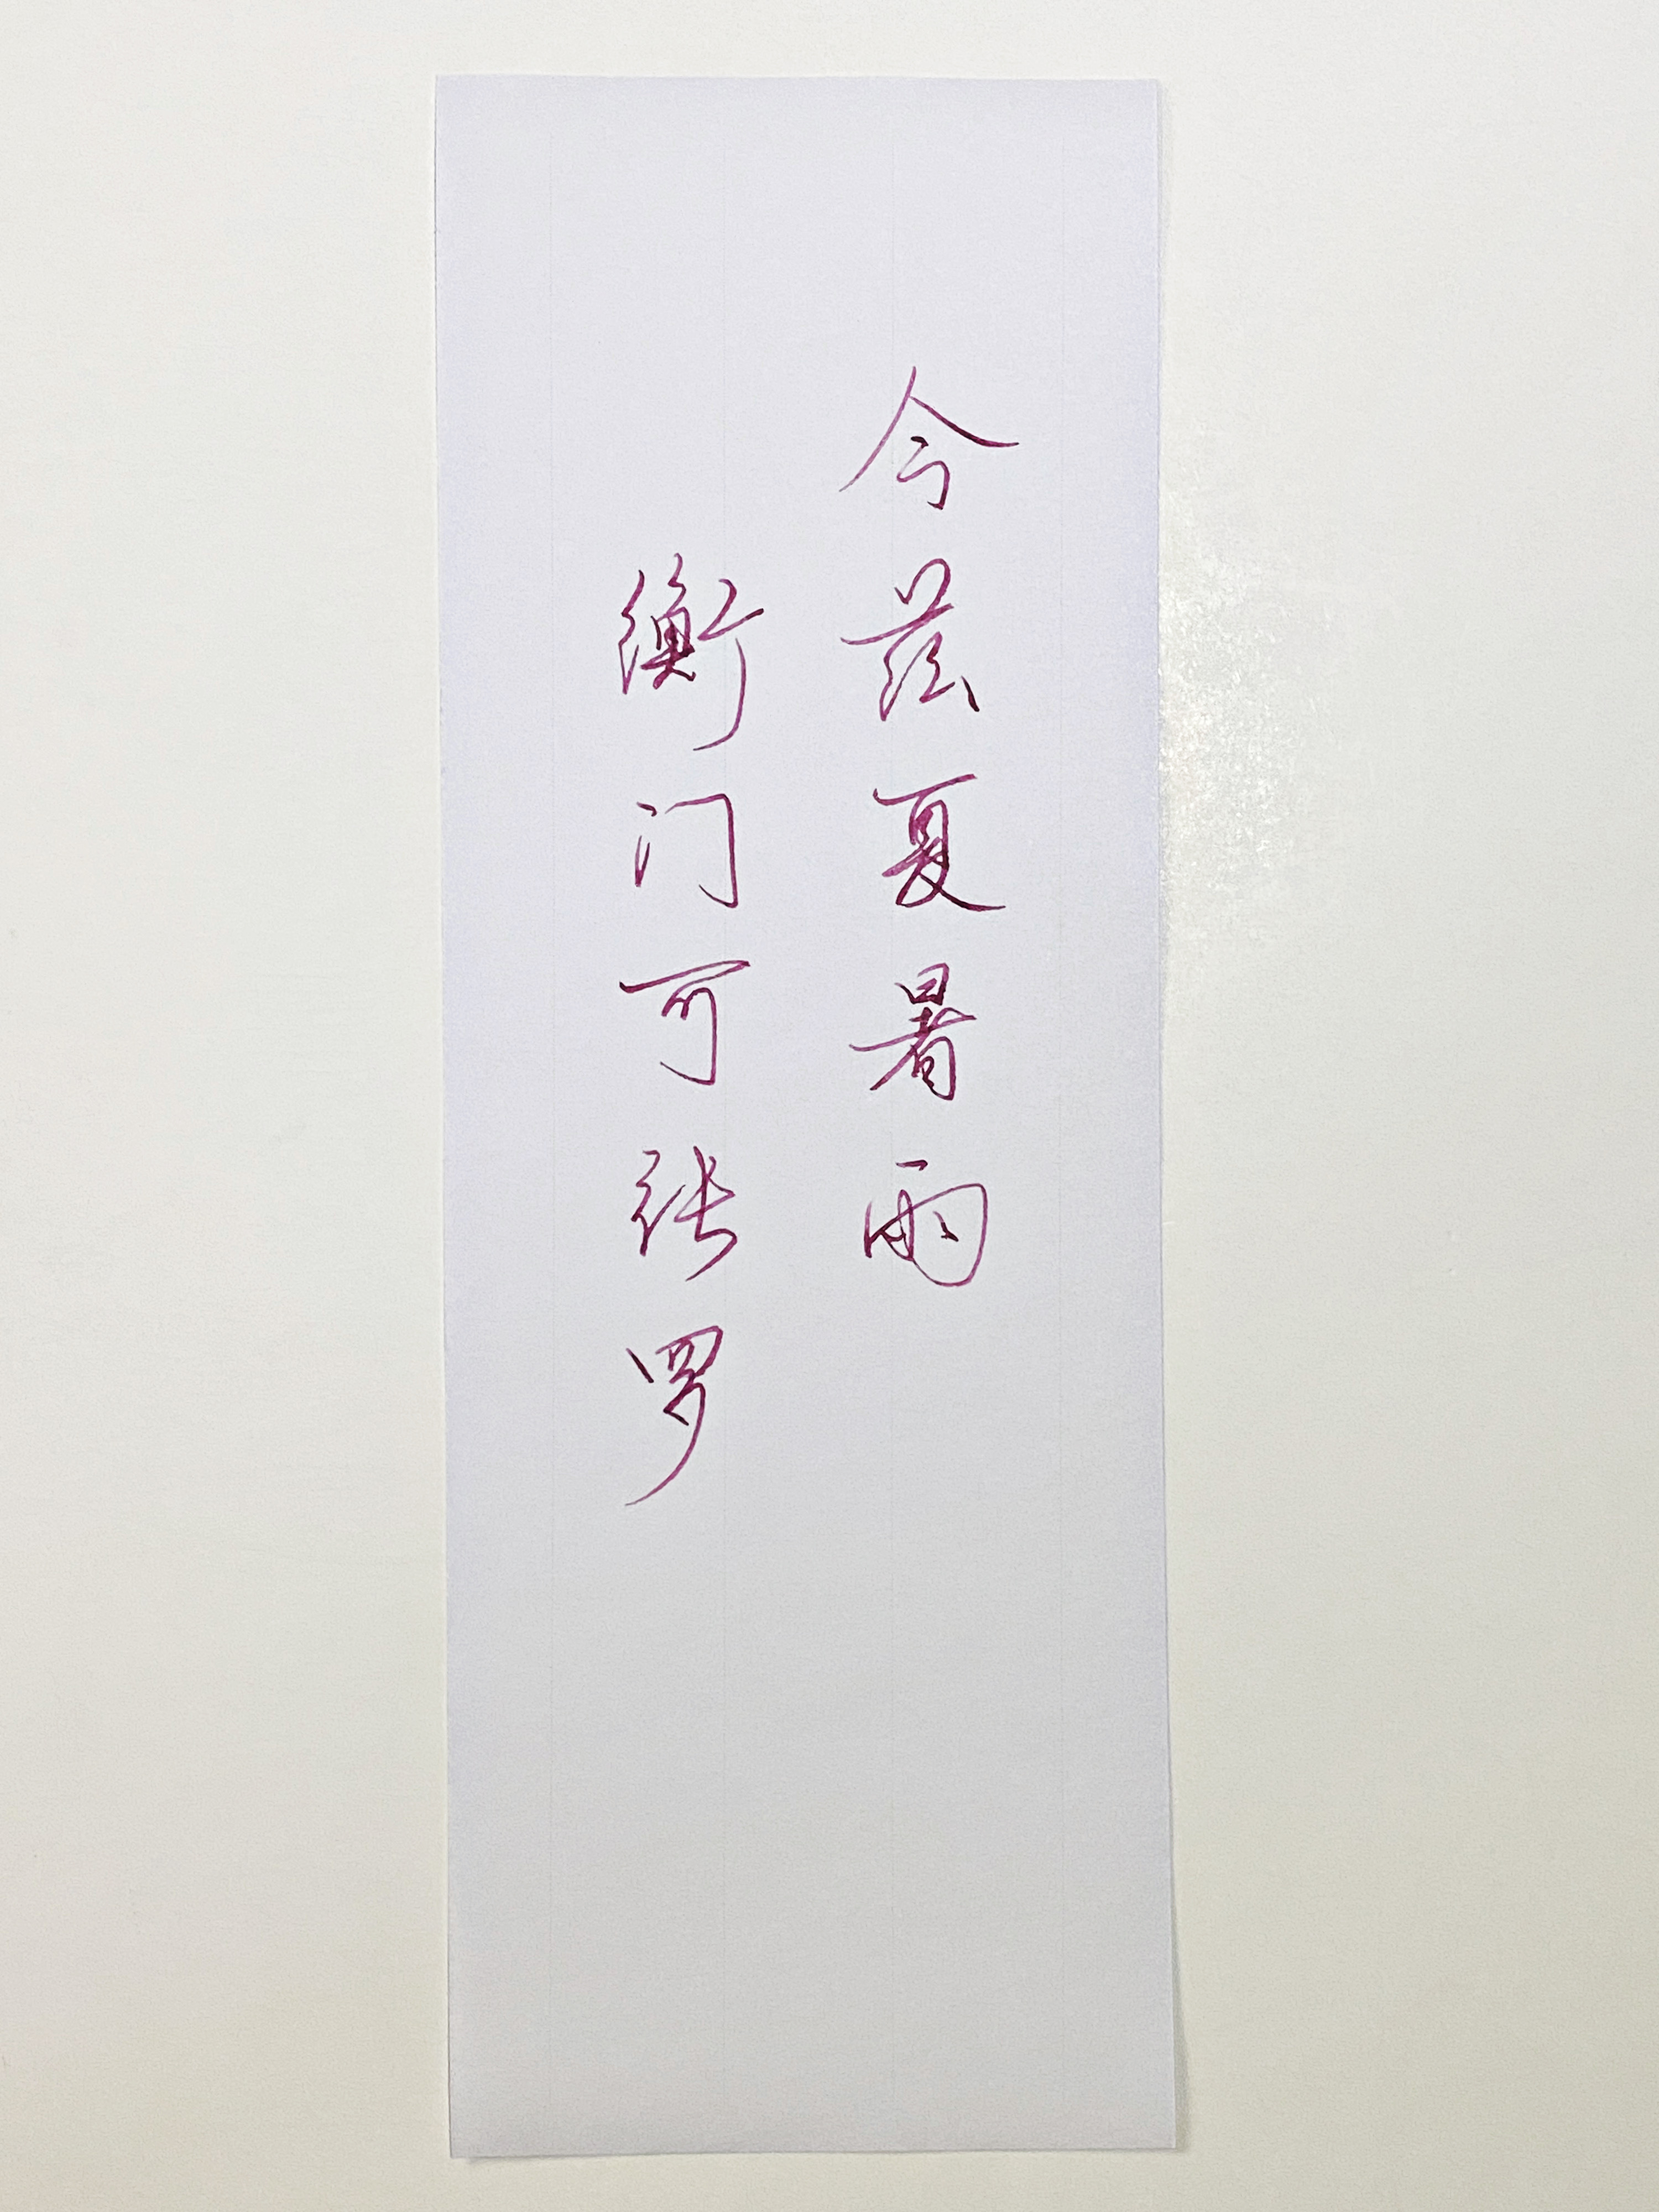 今兹夏暑雨
衡门可张罗